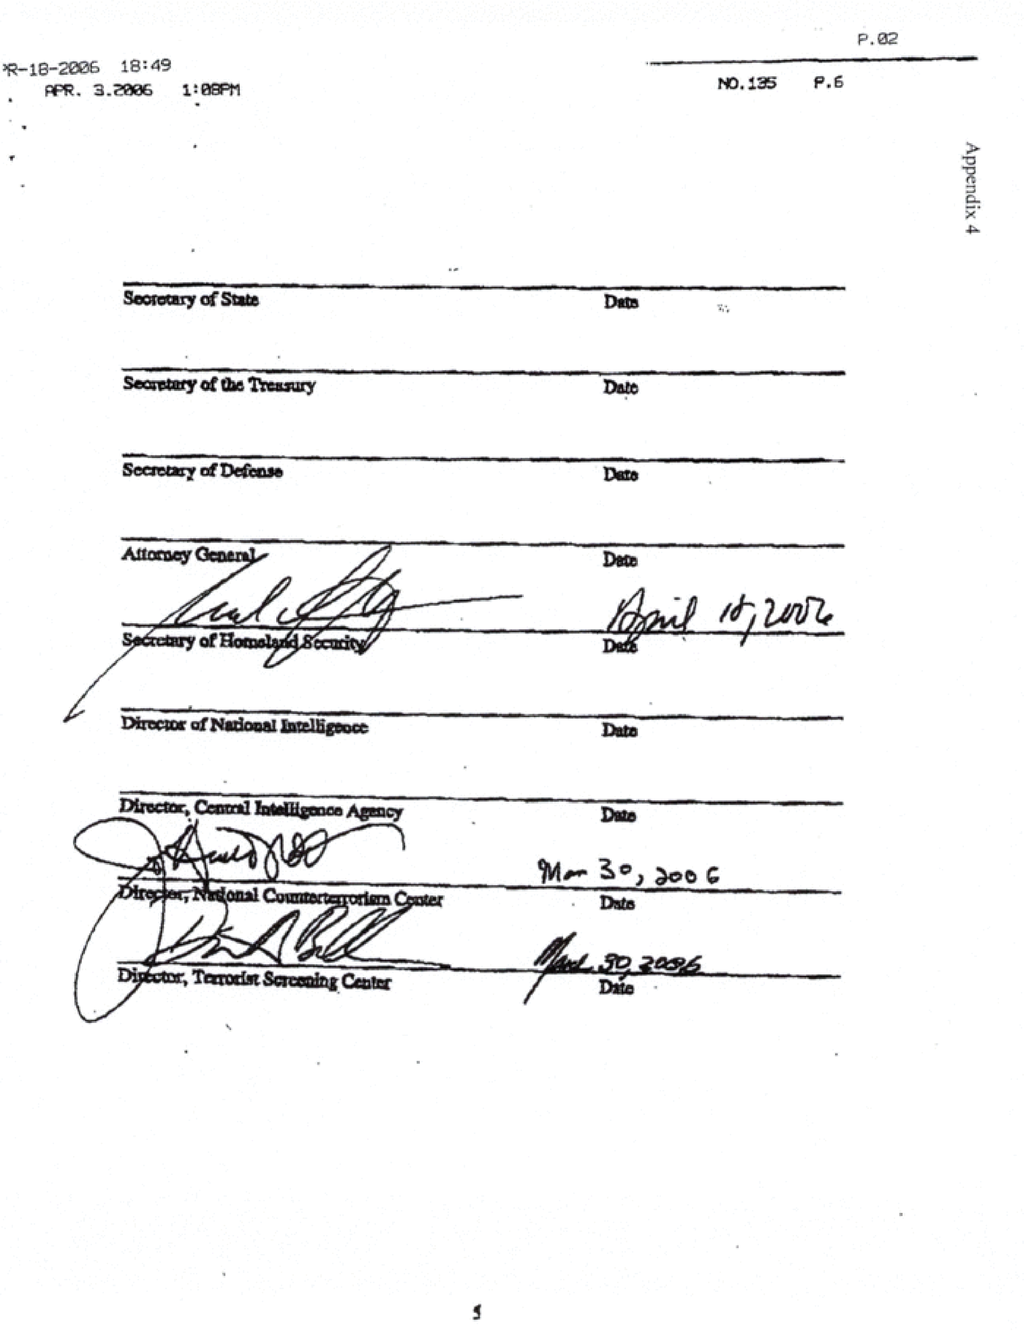 P.02
R-18-2006 18:49
NO.135 P.6
APR. 3.2006 1:08PM
Appendix 4
Secretary of State Date
Secretary of the Treasury Date
Secretary of Defense Date
Attorney General Date
April 18, 2006
Secretary of Homeland Security Date
Director of National Intelligence Date
Director, Central Intelligence Agency Date
Mar 30, 2006
Director, National Counterterrorism Center Date
March 30, 2006
Director, Terrorist Screening Center Date
5